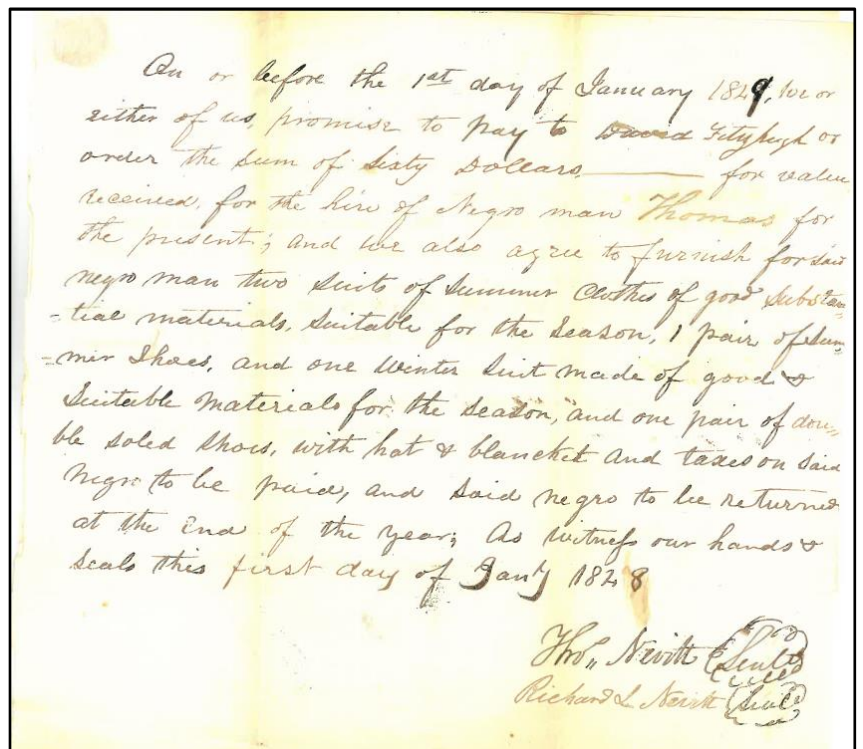 On or before the 1st day of January 1849, we or
either of us, promise to pay to David Fitzhugh or
order the sum of Sixty Dollars, ——— for value
received, for the hire of Negro man Thomas for
the present; and we also agree to furnish for said
negro man two suits of Summer Clothes of good Substan-
-tial materials, Suitable for the Season, 1 pair of Sum-
=mer Shoes, and one Winter Suit made of good &
Suitable Materials for the season, and one pair of dou-
ble soled shoes, with hat & blancket and taxes on said
Negro to be paid, and said negro to be returned
at the End of the year; As witness our hands &
seals this first day of Jany 1848
Tho,, Nevitt Seal
Richard L Nevitt Seal